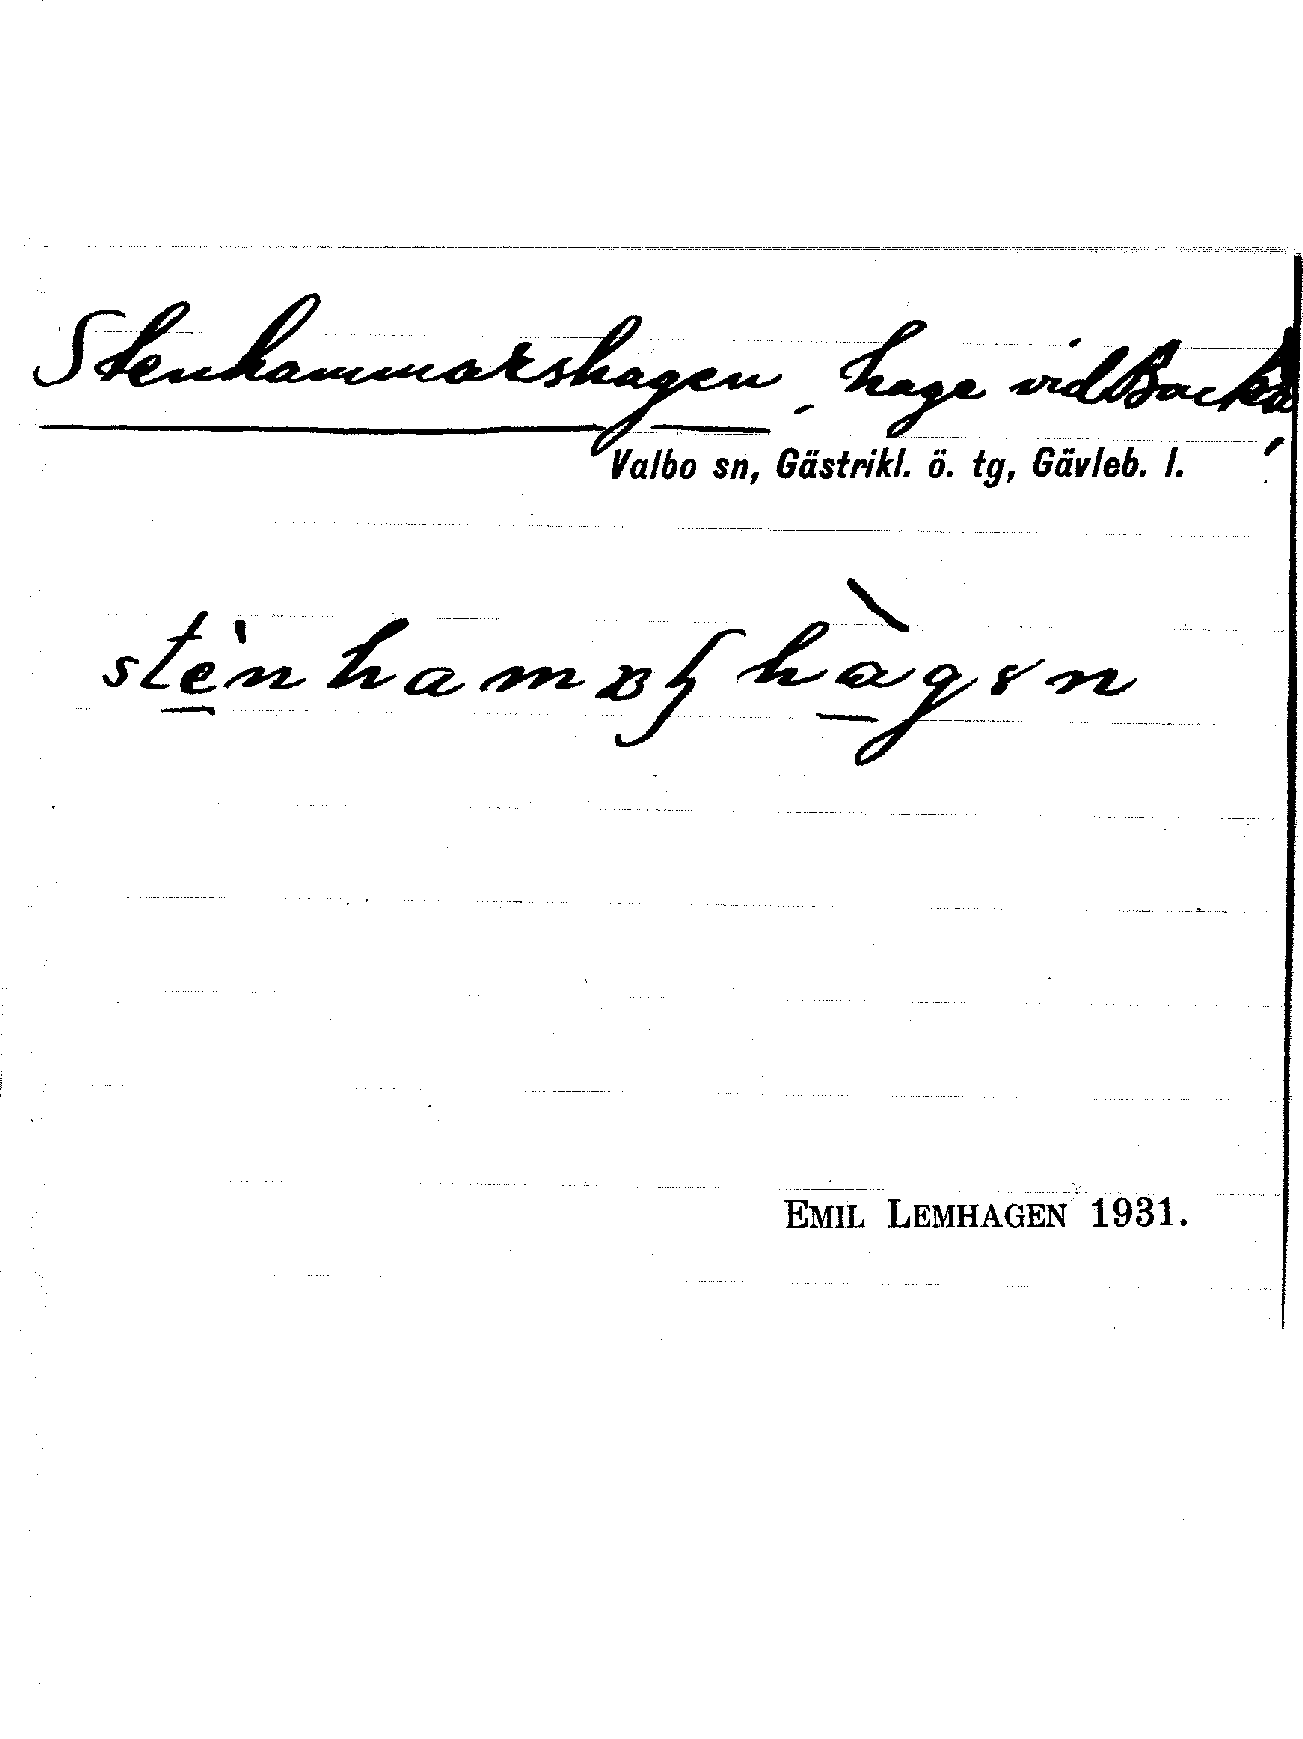 Stenhammarshagen, hage vid Backa,
Valbo sn, Gästrikl. ö. tg, Gävleb. l.
EMIL LEMHAGEN 1931.